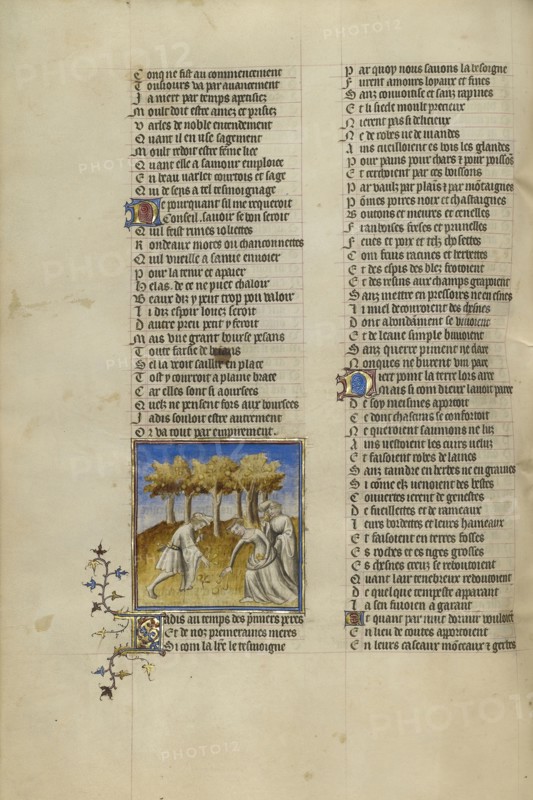 Conq ne fist au commencement
Tousiours va par auancement
Ja niert par temps apensez
Moult doit estre amez et prisiez
Varles de noble entendement
Quant il en use sagement
Moult redoit estre femme liee
Quant elle a samour emploiee
En beau varlet courtois et sage
Qui de sens a tel tesmoignage
Ne pourquant sil me requeroit
Conseil sauoir se bon seroit
Quil feist rimes ioliettes
Rondeaux motes ou chanconnettes
Quil vueille a samie enuoier
Pour la tenir et apaier
Helas de ce ne puet chaloir
Beaux diz y peut trop pou valoir
Li diz espoir louez seroit
Dautre preu petit y feroit
Mais vne grant bourse pesans
Toute farsie de besans
Se la veoit saillir en place
Tost y courroit a plaine brace
Car elles sont si aoursees
Quelz ne pensent fors aux boursees
Jadis souloit estre autrement
Or va tout par empirement
Jadis au temps des premiers peres
Et de noz premeraines meres
Si com la lre le tesmoigne
Par quoy nous sauons la besoigne
Furent amours loyaux et fines
Sanz conuoitise et sanz rapines
Et li siecle moult precieux
Nierent pas si delicieux
Ne de robes ne de uiandes
Ains cueilloient es bois les glandes
Pour pains pour chars et pour poissons
Et cerchoient par ces boissons
Par vaulx par plains et par montaignes
Pomes poires noix et chastaignes
Boutons et meures et cenelles
Framboises freses et prunelles
Feues et poix et telz chosettes
Com fruis racines et herbettes
Et des espis des blez frotoient
Et des resins aux champs grapoient
Sanz mettre en pressoirs ne en esnes
Li miel decouroient des chesnes
Dont abondamment se viuoient
Et de leaue simple buuoient
Sanz querre piment ne clare
Nonques ne burent vin pare
Niert point la terre lors aree
Mais si com dieux lauoit paree
De soy meismes aportoit
Ce dont chascuns se confortoit
Ne queroient saumons ne luz
Ains vestoient les cuirs veluz
Et faisoient robes de laines
Sanz taindre en herbes ne en graines
Si comme elz venoient des bestes
Couuertes ierent de genestes
De fueillettes et de rameaux
Leurs bordettes et leurs hameaux
Et faisoient en terres fosses
Es roches et es tiges grosses
Es chesnes creux se reboutoient
Quant lair tenebreux redoutoient
De quelque tempeste apparant
La sen fuioient a garant
Et quant par nuit dormir vouloient
En lieu de coutes apportoient
En leurs caseaux monceaux et gerbes
PHOTO12